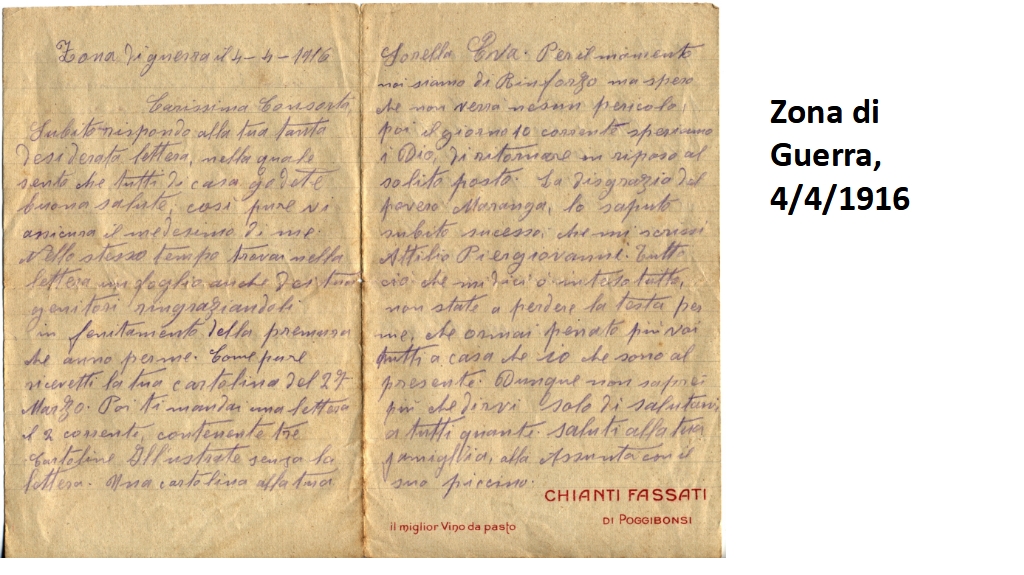 Zona di guerra il 4-4-1916
Carissima Consorte,
Subito rispondo alla tua tanta
desiderata lettera, nella quale
sento che tutti di casa godete
buona salute, così pure vi
assicura il medesimo di me.
Nello stesso tempo trovai nella
lettera un foglio anche dei tuoi
genitori ringraziandoli
in fenitamento della premura
che anno per me. Come pure
ricevetti la tua cartolina del 27
Marzo. Poi ti mandai una lettera
il 2 corrente, contenente tre
Cartoline Illustrate senza la
lettera. Una cartolina alla tua
Sorella Eva. Per il momento
noi siamo di Rinforzo ma spero
che non verra nesun pericolo,
poi il giorno 10 corrente speriamo
i Dio, di ritornare in riposo al
solito posto. La disgrazia del
povero Maranga, lo saputo
subito sucesso, che mi scrissi
Attilio Piergiovanni. Tutto
ciò che mi dici o inteso tutto,
non state a perdere la testa per
me, che ormai penate più voi
tutti a casa che io che sono al
presente. Dunque non saprei
più che dirvi solo di salutarvi
a tutti quante. saluti alla tua
famiglia, alla Assunta con il
suo piccino.
CHIANTI FASSATI
DI POGGIBONSI
il miglior Vino da pasto
Zona di
Guerra,
4/4/1916